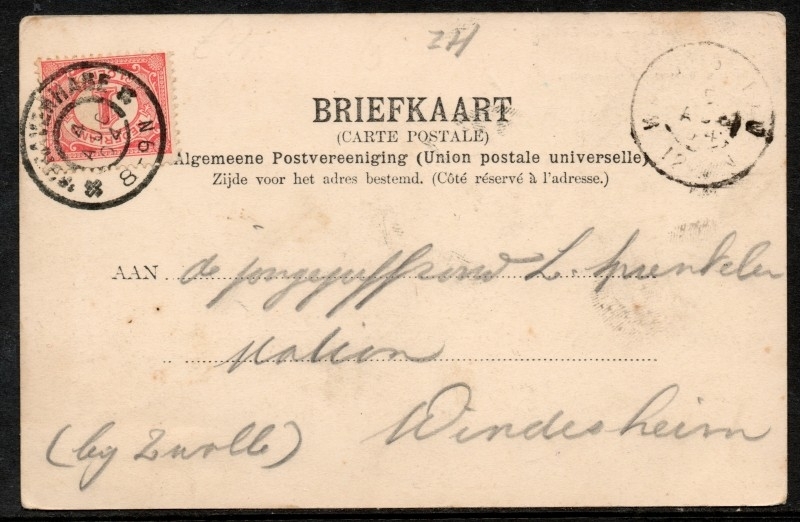 BRIEFKAART
(CARTE POSTALE)
Algemeene Postvereeniging (Union postale universelle)
Zijde voor het adres bestemd. (Côté réservé à l'adresse.)
AAN de L. Sprenkeler
Station
Windesheim
(bij Zwolle)